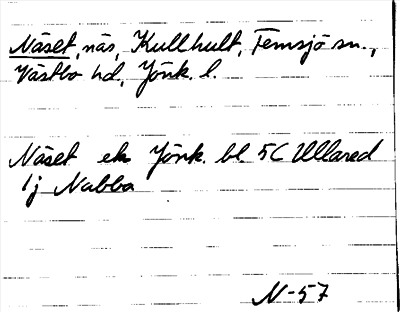 Näset, näs, Kullhult, Femsjö sn.,
Västbo hd, Jönk. l.
Näset ek Jönk. bl. 5C Ullared
1j Nabba
N-57